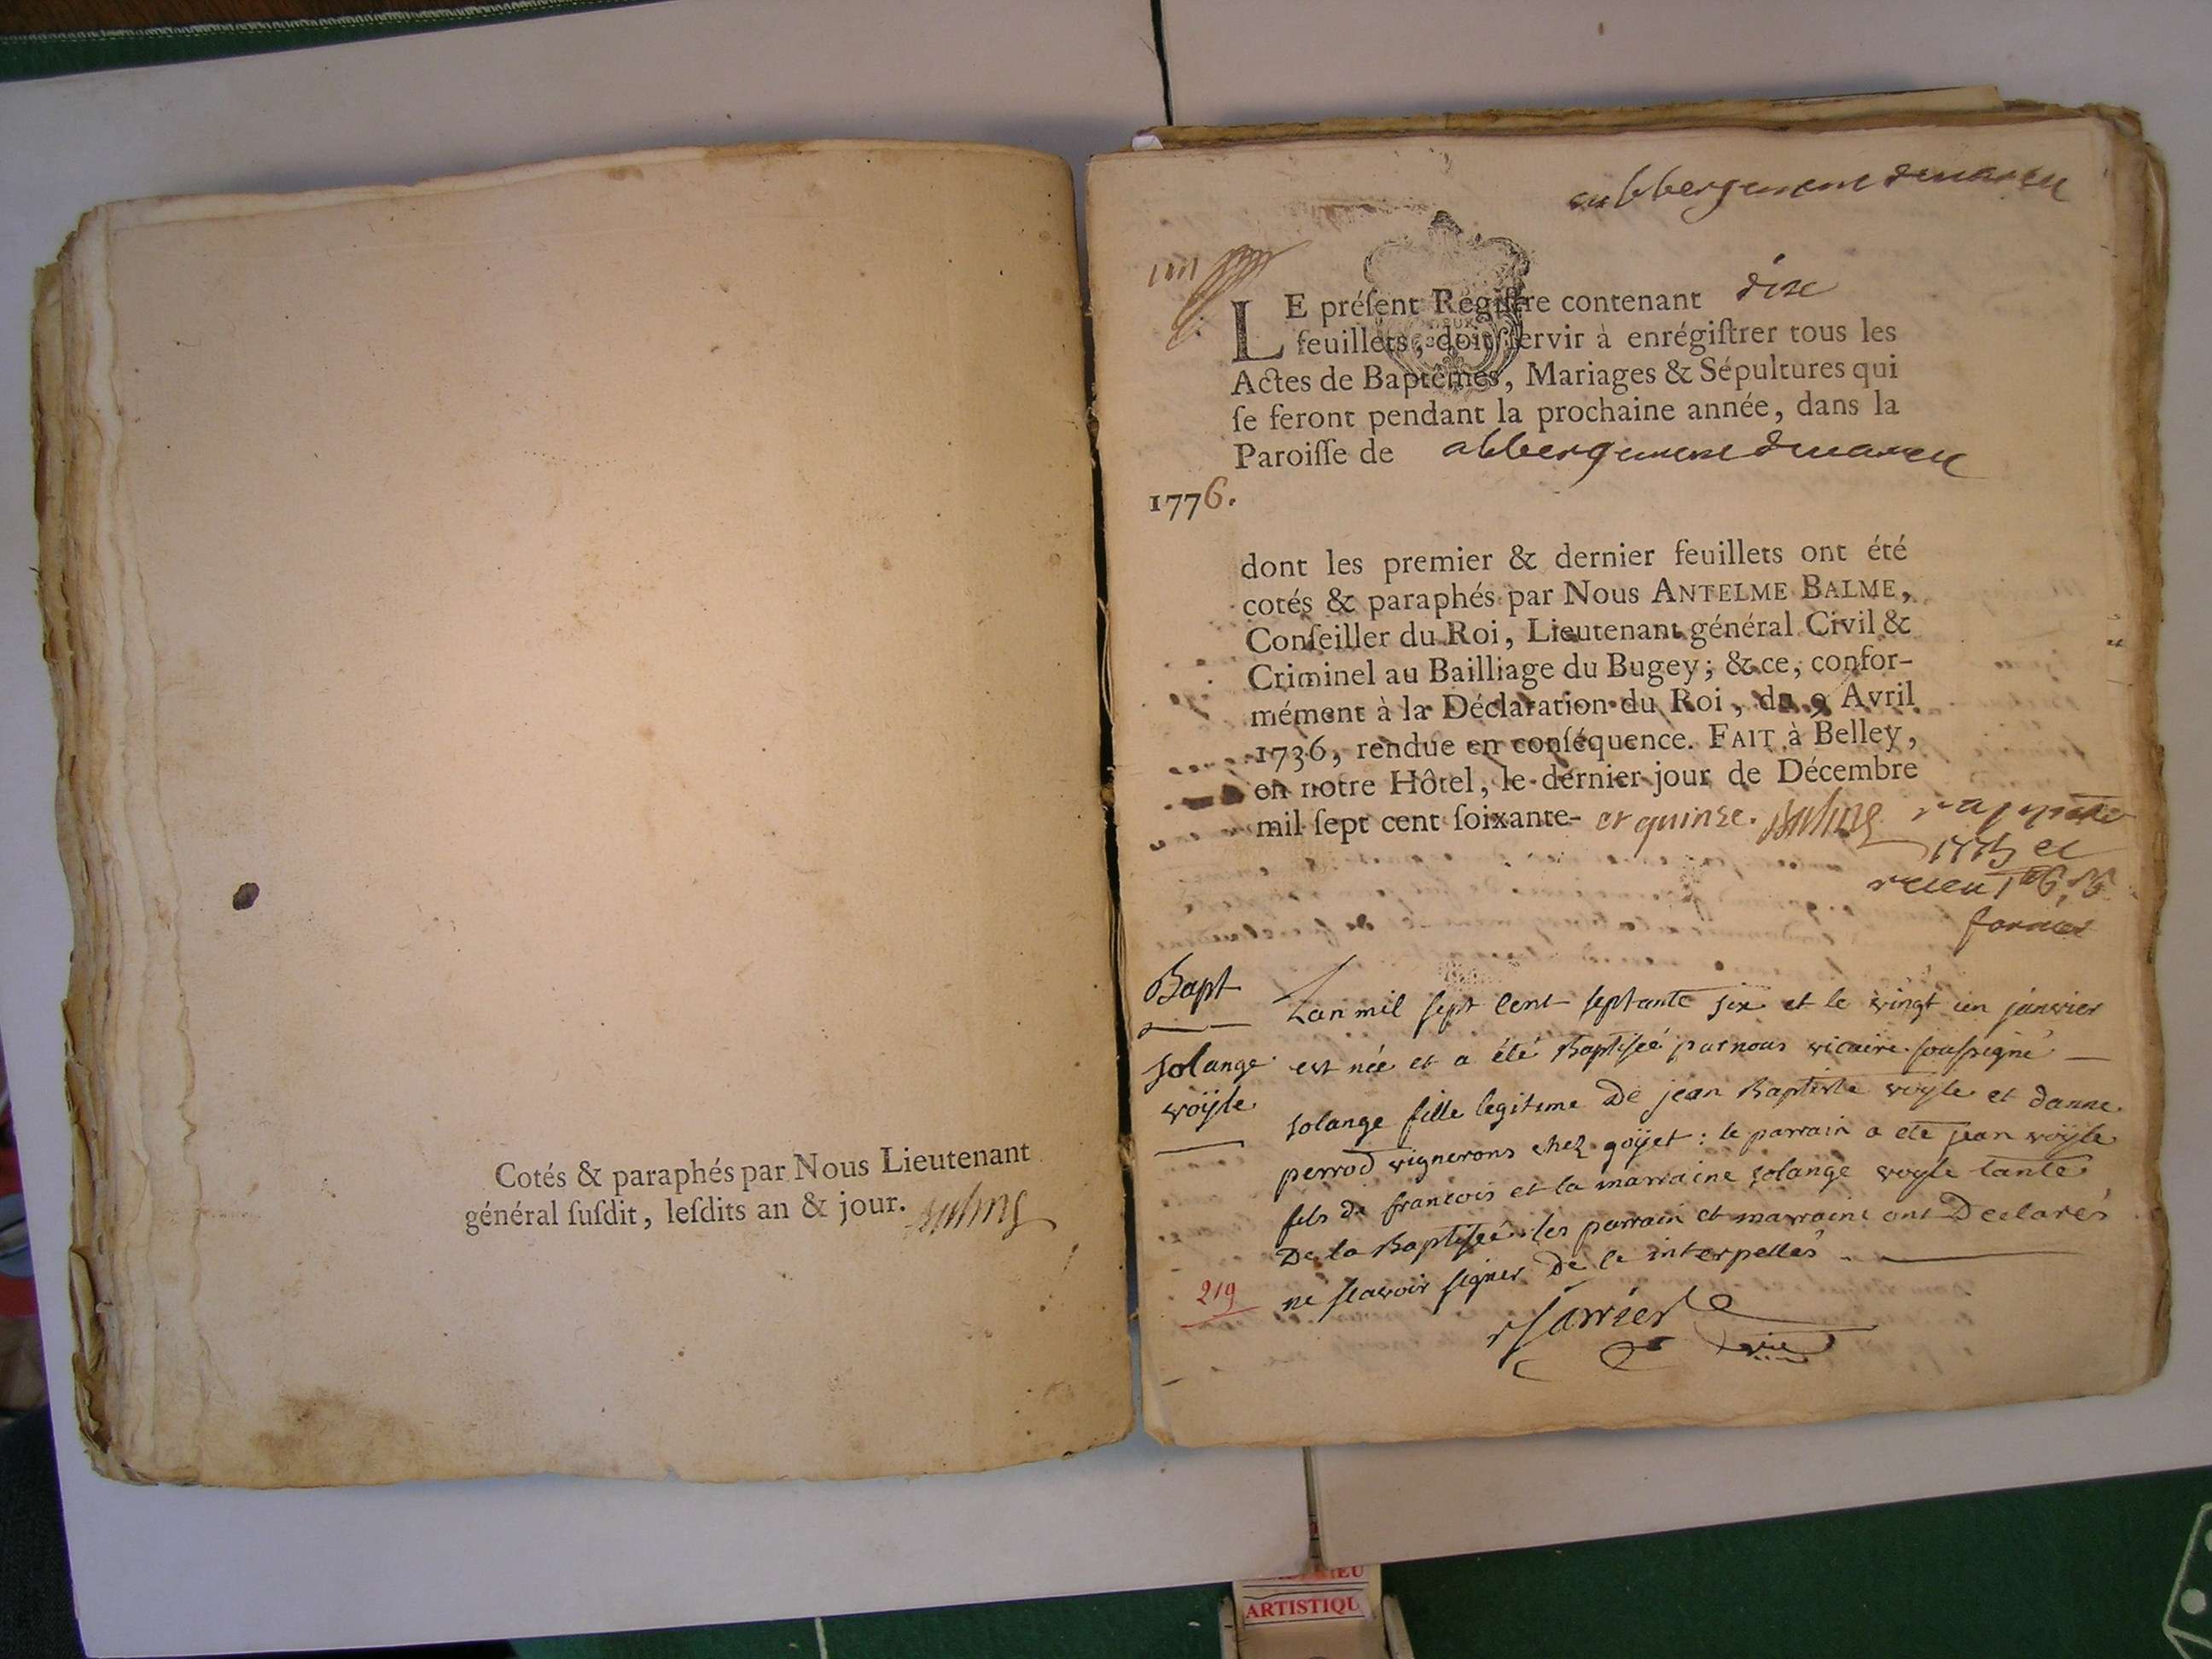 Cotés & paraphés par Nous Lieutenant
général ſuſdit, leſdits an & jour.
dix
LE préſent Regiſtre contenant
feuillets, doit ſervir à enrégiſtrer tous les
Actes de Baptêmes, Mariages & Sépultures qui
ſe feront pendant la prochaine année, dans la
Paroiſſe de
1776.
dont les premier & dernier feuillets ont été
cotés & paraphés par Nous ANTELME BALME,
Conſeiller du Roi, Lieutenant général Civil &
Criminel au Bailliage du Bugey; & ce, confor-
mément à la Déclaration du Roi, du 9 Avril
1736, rendue en conſéquence. FAIT à Belley,
en notre Hôtel, le dernier jour de Décembre
mil ſept cent ſoixante- et quinze.
Bapt
solange
voÿle
Lan mil ſept cent ſeptante six et le vingt un janvier
est née et a été Baptiſée par nous vicaire ſouſsigné
solange fille legitime De jean Baptiste voÿle et danne
perrod vignerons chez goÿet : le parrain a eté jean voÿle
fils de francois et la marraine solange voyle tante
De la Baptiſée. les parrain et marraine ont Declarés
ne ſcavoir ſigner De ce interpellés
219
ARTISTIQU